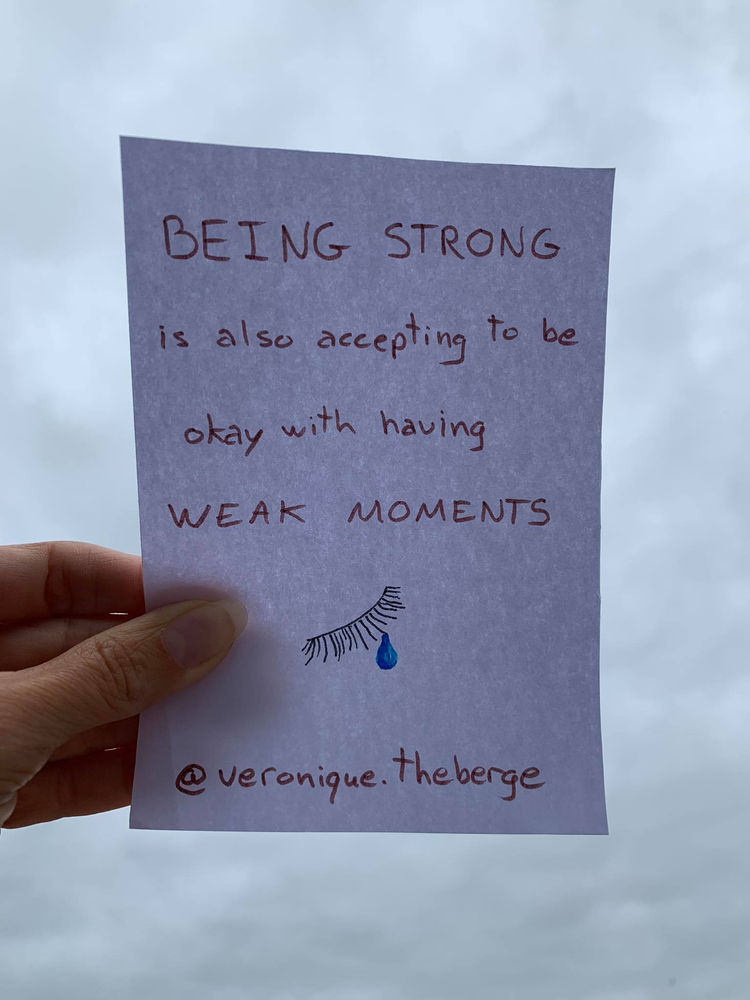 BEING STRONG
is also accepting to be
okay with having
WEAK MOMENTS
@veronique.theberge